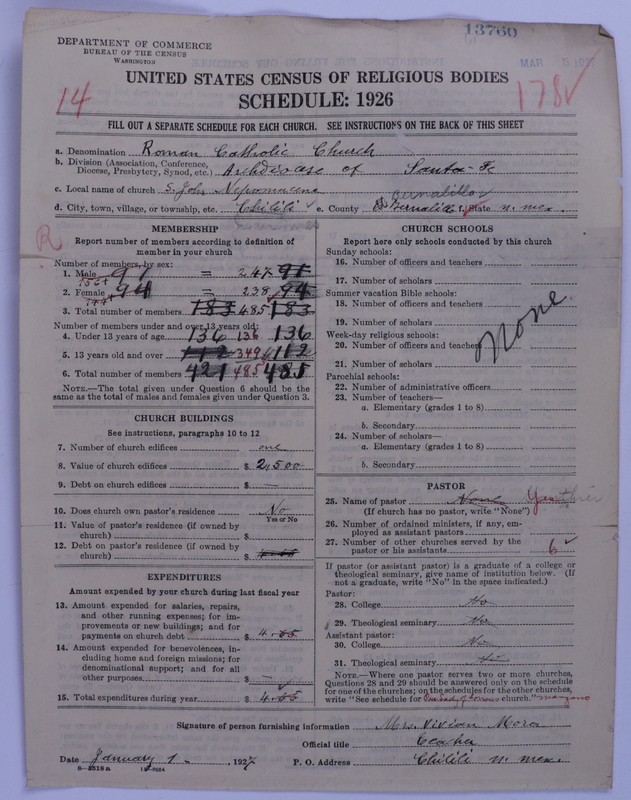 13760
DEPARTMENT OF COMMERCE
BUREAU OF THE CENSUS
WASHINGTON
MAR
UNITED STATES CENSUS OF RELIGIOUS BODIES
SCHEDULE: 1926
14
178 ✓
FILL OUT A SEPARATE SCHEDULE FOR EACH CHURCH. SEE INSTRUCTIONS ON THE BACK OF THIS SHEET
a. Denomination Roman Catholic Church
b. Division (Association, Conference, Diocese, Presbytery, Synod, etc.) Archdiocese of Santa-Fe
c. Local name of church S. John Nepomucene
Bernalillo
d. City, town, village, or township, etc. Chilili e. County Bernalillo f. State n. mex.
R
MEMBERSHIP
Report number of members according to definition of
member in your church
Number of members, by sex:
1. Male 91 = 247 91
156+
2. Female 94 = 238 94
144+
3. Total number of members 183 485 183
Number of members under and over 13 years old:
4. Under 13 years of age 136 136 136
5. 13 years old and over 112 349 112
6. Total number of members 421 485 485
NOTE.—The total given under Question 6 should be
same as the total of males and females given under Question 3.
CHURCH BUILDINGS
See instructions, paragraphs 10 to 12
7. Number of church edifices one
8. Value of church edifices $ 2,500
9. Debt on church edifices $ —
10. Does church own pastor's residence No
Yes or No
11. Value of pastor's residence (if owned by
church) $
12. Debt on pastor's residence (if owned by
church) $
EXPENDITURES
Amount expended by your church during last fiscal year
13. Amount expended for salaries, repairs,
and other running expenses; for im-
provements or new buildings; and for
payments on church debt $ 4.05
14. Amount expended for benevolences, in-
cluding home and foreign missions; for
denominational support; and for all
other purposes $ —
15. Total expenditures during year $ 4.05
CHURCH SCHOOLS
Report here only schools conducted by this church
Sunday schools:
16. Number of officers and teachers
17. Number of scholars
Summer vacation Bible schools:
18. Number of officers and teachers
19. Number of scholars
Week-day religious schools:
20. Number of officers and teachers
21. Number of scholars
None
Parochial schools:
22. Number of administrative officers
23. Number of teachers—
a. Elementary (grades 1 to 8)
b. Secondary
24. Number of scholars—
a. Elementary (grades 1 to 8)
b. Secondary
PASTOR
25. Name of pastor None
(If church has no pastor, write "None")
26. Number of ordained ministers, if any, em-
ployed as assistant pastors
27. Number of other churches served by the
pastor or his assistants 6 ✓
If pastor (or assistant pastor) is a graduate of a college or
theological seminary, give name of institution below. (If
not a graduate, write "No" in the space indicated.)
Pastor:
28. College No
29. Theological seminary No
Assistant pastor:
30. College No
31. Theological seminary No
NOTE.—Where one pastor serves two or more churches,
Questions 28 and 29 should be answered only on the schedule
for one of the churches; on the schedules for the other churches,
write "See schedule for church." Manzano
Signature of person furnishing information Mrs. Vivian Mora
Official title Teacher
Date January 1 -, 1927 P. O. Address Chilili n. mex.
8—5518a